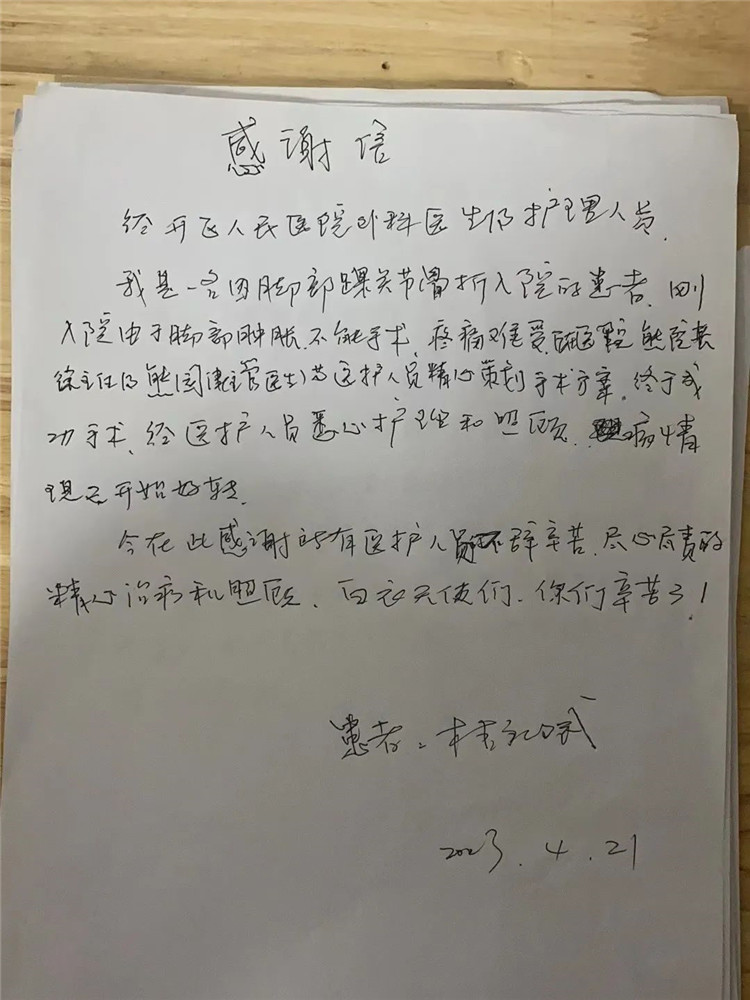 感谢信
经开区人民医院外科医生及护理人员.
我是一名因脚部踝关节骨折入院的患者, 刚
入院由于脚部肿胀, 不能手术, 疼痛难受, 熊院长
徐主任及熊国 主管医生 医护人员精心策划手术方案, 终于成
功手术, 经医护人员悉心护理和照顾, 病情
现已开始好转.
今在此感谢所有医护人员不辞辛苦, 尽心尽责的
精心治疗和照顾, 白衣天使们, 你们辛苦了!
患者:
2023.4.21